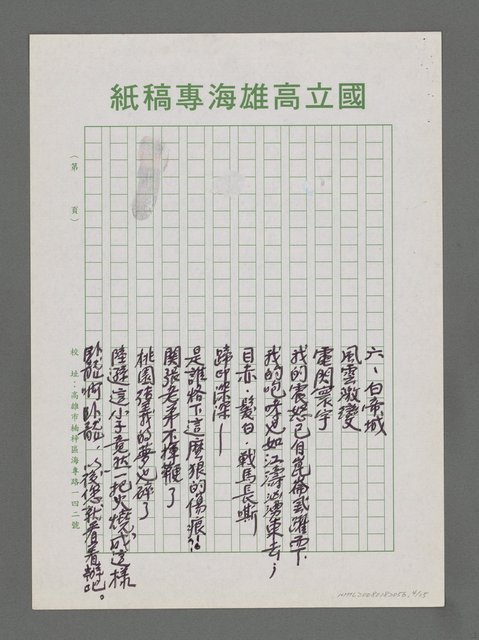 國立高雄海專稿紙
（第　頁）
校址：高雄市楠梓區海專路一四二號
六、白帝城
風雲激變
電閃寰宇
我的震怒已自崑崙武躍而下
我的咆哮也如江濤洶湧東去；
目赤．髮白．戰馬長嘶
蹄印深深——
是誰烙下這麼狠的傷痕？！
關張老弟不揮鞭了
桃園結義的夢也碎了
陸遜這小子竟然一把火燒成這樣
臥龍啊臥龍，以後您就看着辦吧。
NMTL20080180056, 4/15